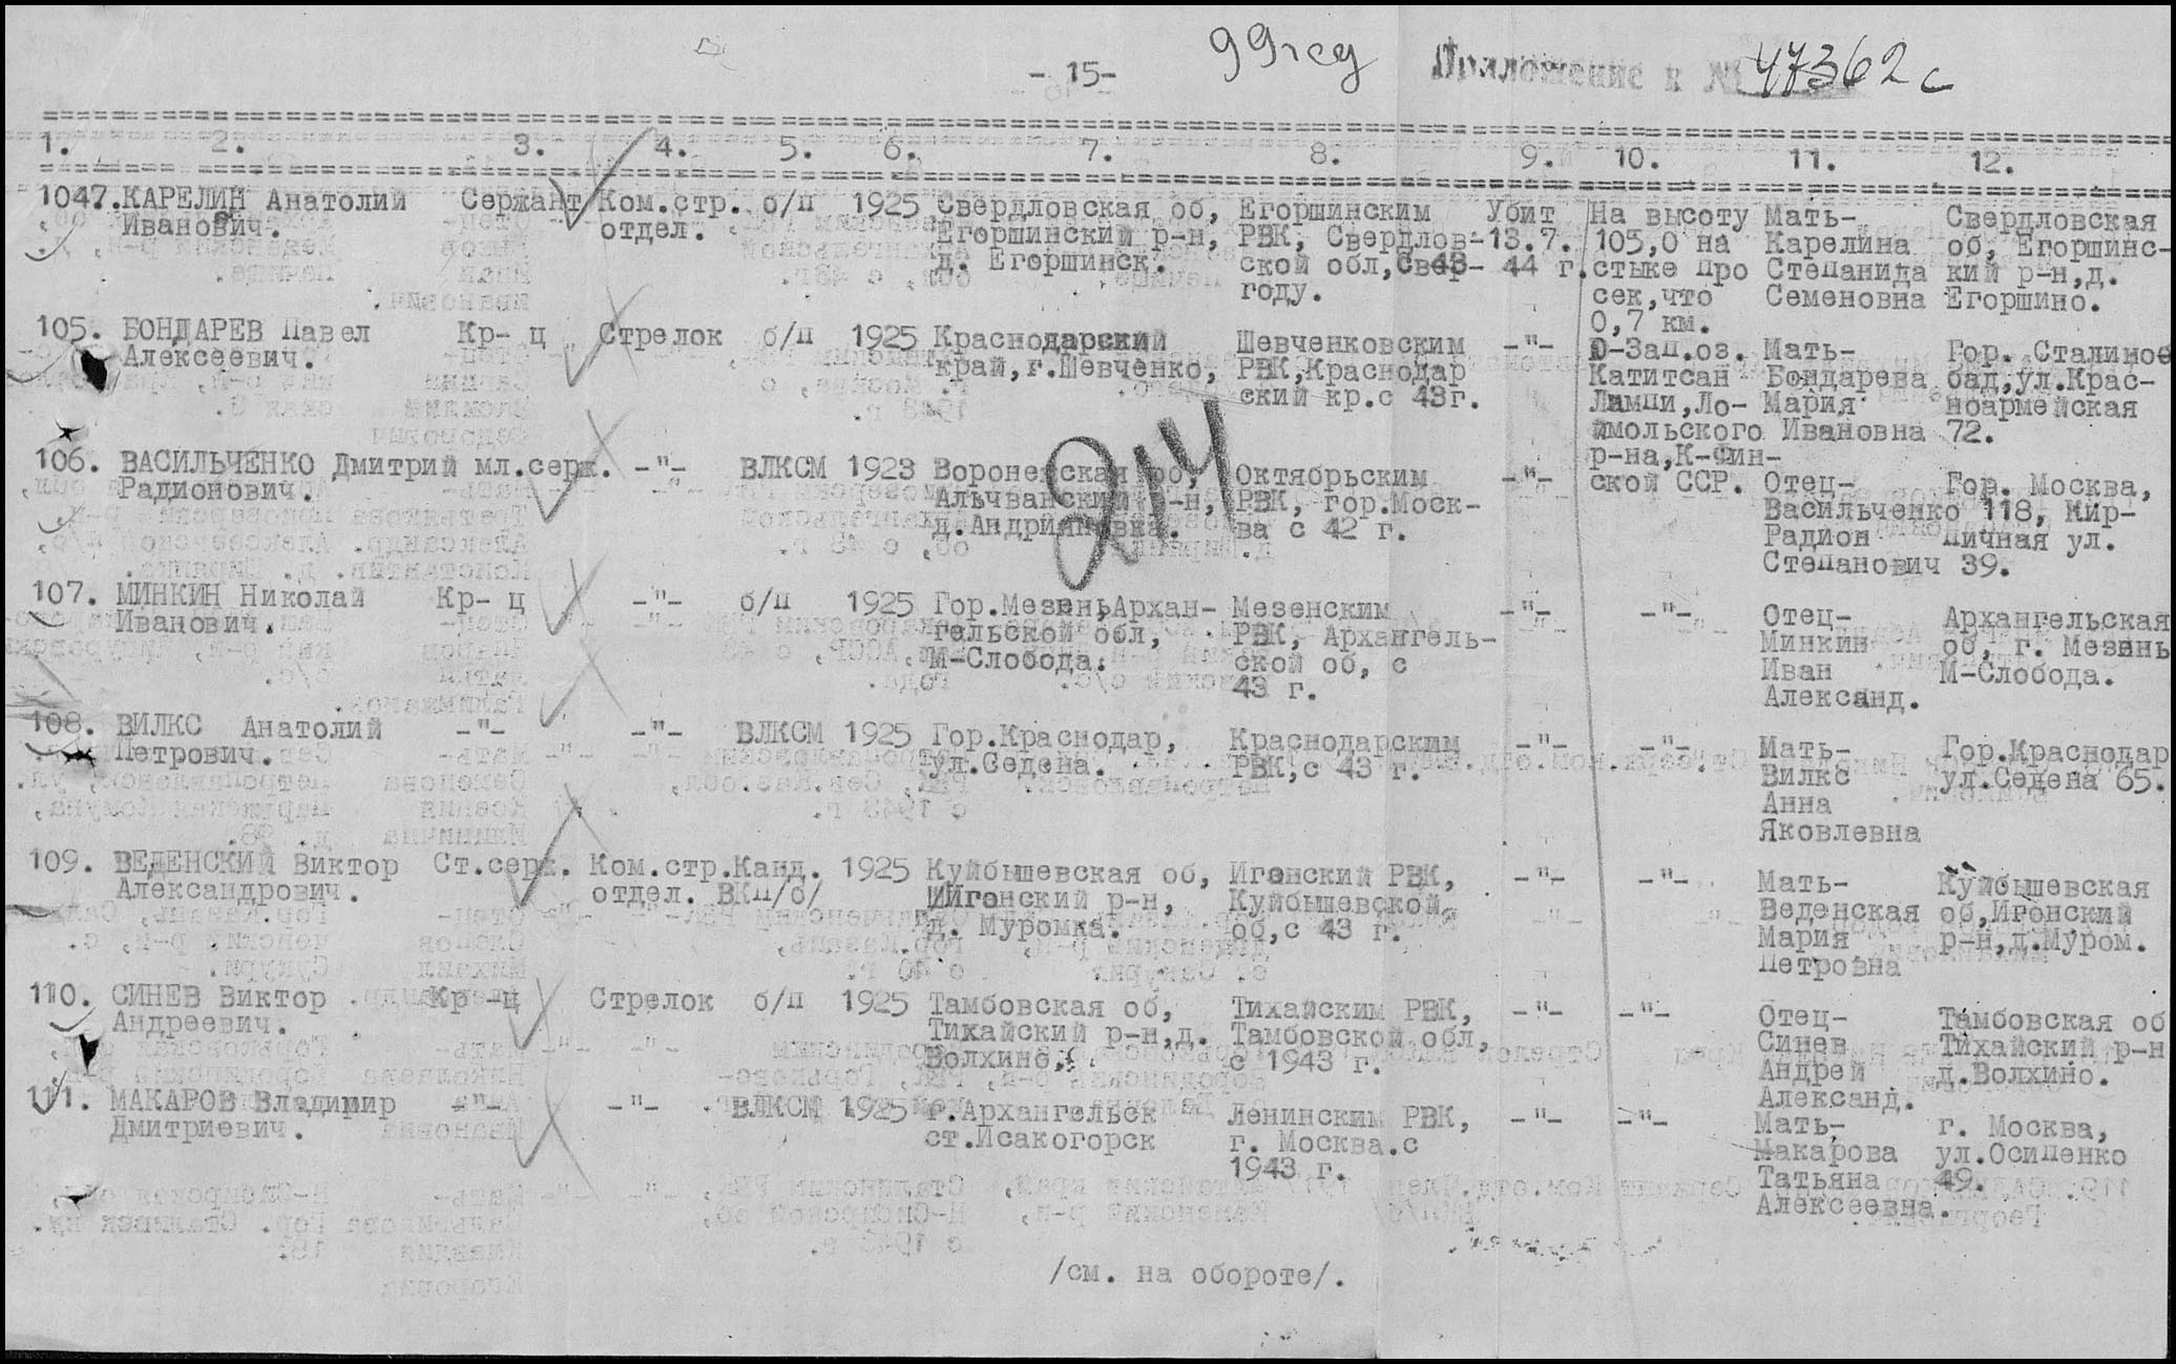 - 15-
99 гсд
Приложение к № 47362 с
1. 2. 3. 4. 5. 6. 7. 8. 9. 10. 11. 12.
1047. КАРЕЛИН Анатолий Иванович.
Сержант
Ком.стр. отдел.
б/п
1925
Свердловская об,
Егоршинский р-н,
д. Егоршинск.
Егоршинским
РВК, Свердлов-
ской обл, с 43
году.
Убит
13.7.
44 г.
На высоту
105,0 на
стыке про
сек,что
0,7 км.
Ю-Зап.оз.
Катитсан
Лампи,Ло-
ймольского
р-на,К-Фин-
ской ССР.
Мать-
Карелина
Степанида
Семеновна
Свердловская
об, Егоршинс-
кий р-н,д.
Егоршино.
105. БОНДАРЕВ Павел
Алексеевич.
Кр- ц
Стрелок
б/п
1925
Краснодарский
край,г.Шевченко,
Шевченковским
РВК,Краснодар
ский кр.с 43г.
-"-
Мать-
Бондарева
Мария
Ивановна
Гор. Сталиноо
бад,ул.Крас-
ноармейская
72.
214
106. ВАСИЛЬЧЕНКО Дмитрий
Радионович.
мл.серж.
-"-
ВЛКСМ
1923
Воронежская об,
Альчванский р-н,
д.Андрияновка.
Октябрьским
РВК, гор.Моск-
ва с 42 г.
-"-
Отец-
Васильченко
Радион
Степанович
Гор. Москва,
118, Кир-
пичная ул.
39.
107. МИНКИН Николай
Иванович.
Кр- ц
-"-
б/п
1925
Гор.Мезень,Архан-
гельской обл,
М-Слобода.
Мезенским
РВК, Архангель-
ской об, с
43 г.
-"-
-"-
Отец-
Минкин
Иван
Александ.
Архангельская
об, г. Мезень
М-Слобода.
108. ВИЛКС Анатолий
Петрович.
-"-
-"-
ВЛКСМ
1925
Гор.Краснодар,
ул.Седена.
Краснодарским
РВК,с 43 г.
-"-
-"-
Мать-
Вилкс
Анна
Яковлевна
Гор.Краснодар
ул.Седена 65.
109. ВЕДЕНСКИЙ Виктор
Александрович.
Ст.серж.
Ком.стр.
отдел.
Канд.
ВКП/б/
1925
Куйбышевская об,
Игонский р-н,
д. Муромка.
Игонский РВК,
Куйбышевской
об,с 43 г.
-"-
-"-
Мать-
Веденская
Мария
Петровна
Куйбышевская
об,Игонский
р-н,д.Муром.
110. СИНЕВ Виктор
Андреевич.
Кр -ц
Стрелок
б/п
1925
Тамбовская об,
Тихайский р-н,д.
Волхино.
Тихайским РВК,
Тамбовской обл,
с 1943 г.
-"-
-"-
Отец-
Синев
Андрей
Александ.
Тамбовская об
Тихайский р-н
д.Волхино.
111. МАКАРОВ Владимир
Дмитриевич.
-"-
-"-
ВЛКСМ
1925
г.Архангельск
ст.Исакогорск
Ленинским РВК,
г. Москва.с
1943 г.
-"-
-"-
Мать-
Макарова
Татьяна
Алексеевна.
г. Москва,
ул.Осипенко
49.
/см. на обороте/.